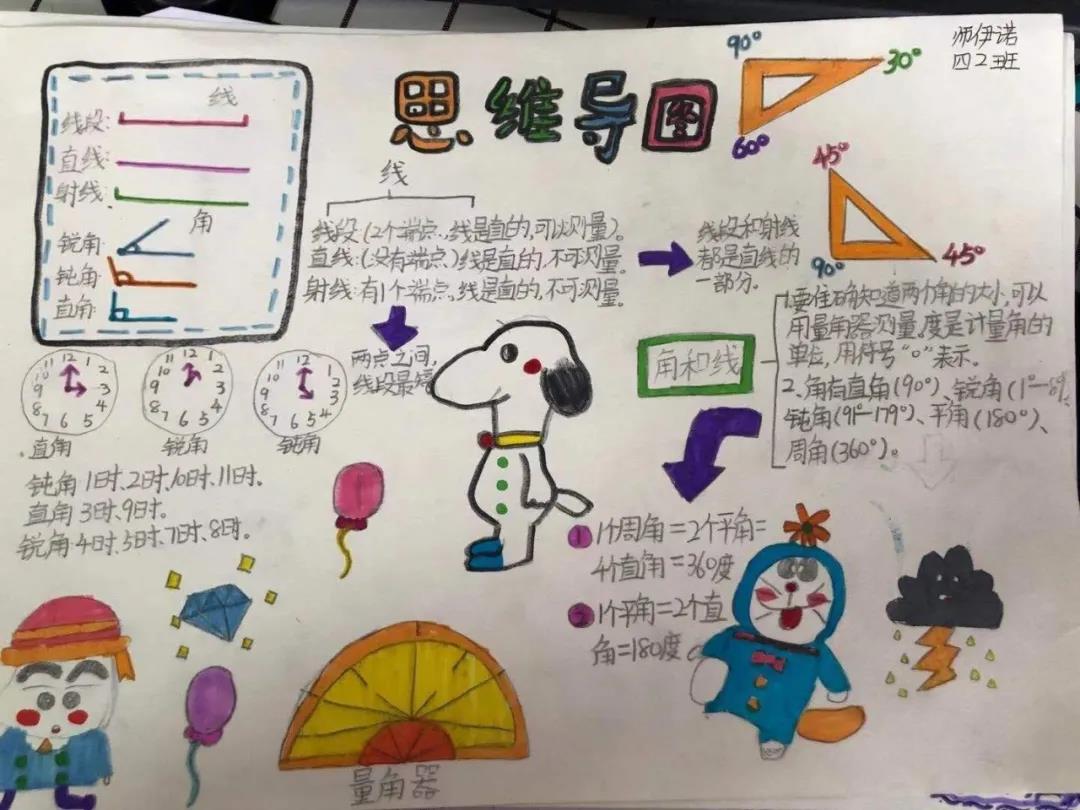 师伊诺
四2班
思维导图
线
线段:
直线:
射线:
角
锐角:
钝角:
直角:
90°
30°
60°
45°
90°
45°
线
线段:(2个端点,线是直的,可以测量)。
直线:(没有端点)线是直的,不可测量。
射线:有1个端点,线是直的,不可测量。
线段和射线
都是直线的
一部分。
两点之间,
线段最短
角和线
1.要准确知道两个角的大小,可以
用量角器测量。度是计量角的
单位,用符号“°”表示。
2.角有直角(90°)、锐角(1°—89°
钝角(91°—179°)、平角(180°)、
周角(360°)。
12 1 2 3 4 5 6 7 8 9 10 11
直角
12 1 2 3 4 5 6 7 8 9 10 11
锐角
12 1 2 3 4 5 6 7 8 9 10 11
钝角
钝角:1时、2时、10时、11时。
直角:3时、9时。
锐角:4时、5时、7时、8时。
1 1个周角=2个平角=
4个直角=360度
2 1个平角=2个直
角=180度
量角器